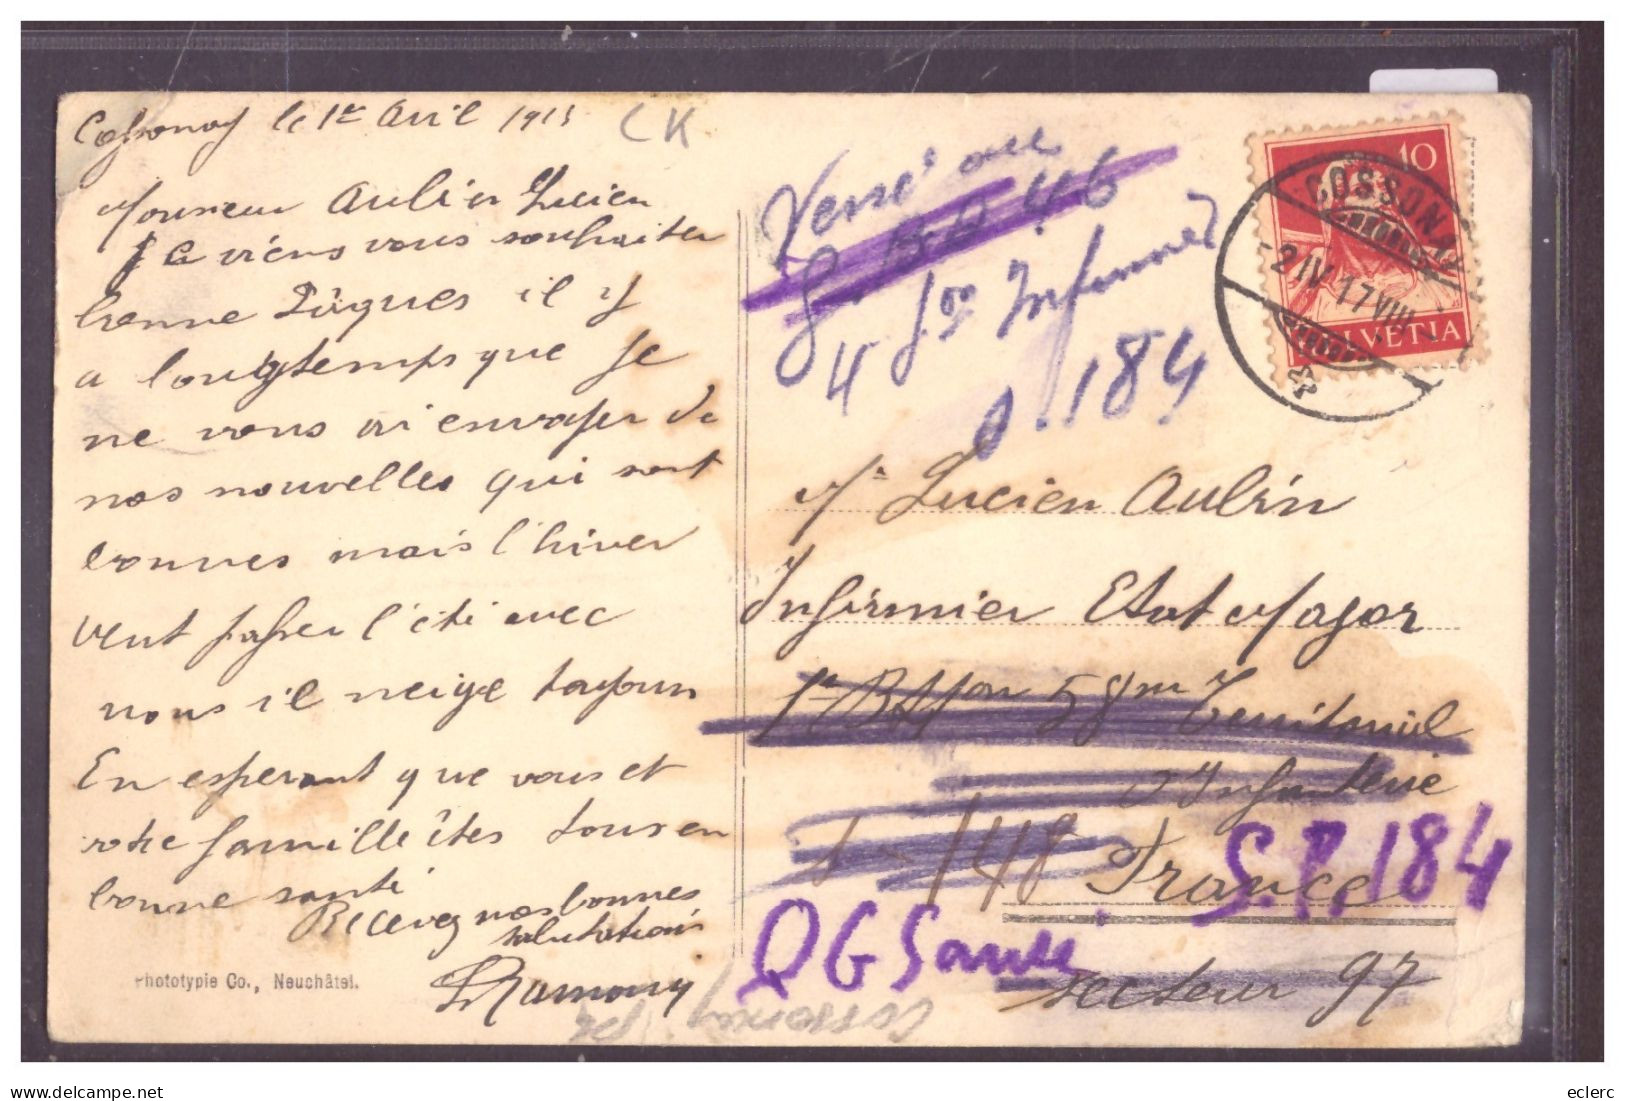 Cossonay le 1er Avril 1915
CK
Monsieur Aulin Lucien
Je viens vous souhaiter
bonne Pâques il y
a longtemps que je
ne vous ai envoyer de
nos nouvelles qui sont
bonnes mais l'hiver
veut passer l'été avec
nous il neige toujour
En esperant que vous et
votre famille êtes tous en
bonne santé
Recevez nos bonnes
salutations
Ramony
Phototypie Co., Neuchâtel.
Cossonay
Versé au
G.B.D 46
4 Infirmier
S. 184
10
HELVETIA
COSSONAY
2 IV 17 VIII
Mr Lucien Aulin
Infirmier Etat Major
1er Btton 58me Territorial
d'Infanterie
148
France
S.P. 184
QG Santé
secteur 97
eclerc